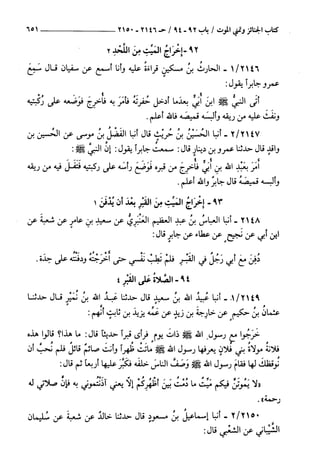 كتاب الجنائز وتمني الموت / باب ٩٢ - ٩٤ / حـ ٢١٤٦ - ٢١٥٠ ٦٥١
٩٢ - إِخْرَاجُ المَيِّتِ مِنَ اللَّحْدِ ٢
١/٢١٤٦ - الحارثُ بنُ مسكينٍ قراءةً عليه وأنا أسمع عن سفيان قـال سَمِعَ
عمرو جابراً يقول:
أتى النبيُّ ﷺ ابنَ أُبيٍّ بعدما أدخل حُفرتَهُ فأمَرَ به فأخرِجَ فوَضعه على رُكبتيه
ونفَثَ عليه من ريقه وألبسه قميصَه فالله أعلم.
٢/٢١٤٧ - أنبا الحُسَيْنُ بنُ حُريْثٍ قال أنبا الفَضْلُ بنُ موسى عن الحُسين بن
واقدٍ قال حدثنا عمرو بن دينارٍ قال: سمعتُ جابراً يقول: إنَّ النبيَّ ﷺ:
أمَرَ بعَبْدِ الله بنِ أُبيٍّ فأخرَجَ من قبره فوَضَعَ رأسَه على ركبتيه فتَفَلَ فيه من ريقه
وألبسه قميصَهُ قال جابرٌ والله أعلم.
٩٣ - إِخْرَاجُ المَيِّتِ مِنَ القَبْرِ بعْدَ أن يُدْفَنَ ١
٢١٤٨ - أنبا العباسُ بنُ عبدِ العظيمِ العَنْبَرِيُّ عن سعيدِ بن عامرٍ عن شعبةَ عن
ابن أبي نَجيح عن عطاء عن جابر قال:
دُفِنَ مَعَ أبي رَجُلٌ في القَبْرِ فلم تَطِبْ نَفْسي حتى أخْرَجْتُهُ ودفَنْتُه على حِدَة.
٩٤ - الصَّلاةُ عَلى القَبْرِ ٤
١/٢١٤٩ - أنبا عُبيدُ الله بنُ سعيدٍ قال حدثنا عَبدُ الله بنُ نُمَيْرٍ قـال حدثنـا
عثمانُ بنُ حكيمٍ عن خارجةَ بنِ زيدٍ عن عَمِّه يزيدَ بن ثابتٍ أنهُم:
خَرَجُوا مع رسولِ الله ﷺ ذاتَ يومٍ فرأى قبراً حديثاً قال: ما هذا؟ قالوا هذه
فلانةُ مولاةُ بني فُلانٍ يعرفها رسول الله ﷺ ماتَتْ ظهراً وأنتَ صائمٌ قائلٌ فلم نُحبّ أن
نُوقظكَ لها فقامَ رسول الله ﷺ وَصَفَّ الناسَ خلفَه فكَبَّرَ عليها أربعاً ثم قال:
«لا يَمُوتَنَّ فيكم مَيِّتٌ ما دُمْتُ بَيْنَ أظْهُرِكُمْ إلاّ يعني آذَنْتُموني به فإنّ صلاتي له
رحمة».
٢/٢١٥٠ - أنبا إسماعيلُ بنُ مسعودٍ قال حدثنا خالدٌ عن شعبةَ عن سُليمان
الشَّيْباني عن الشعْبي قال: